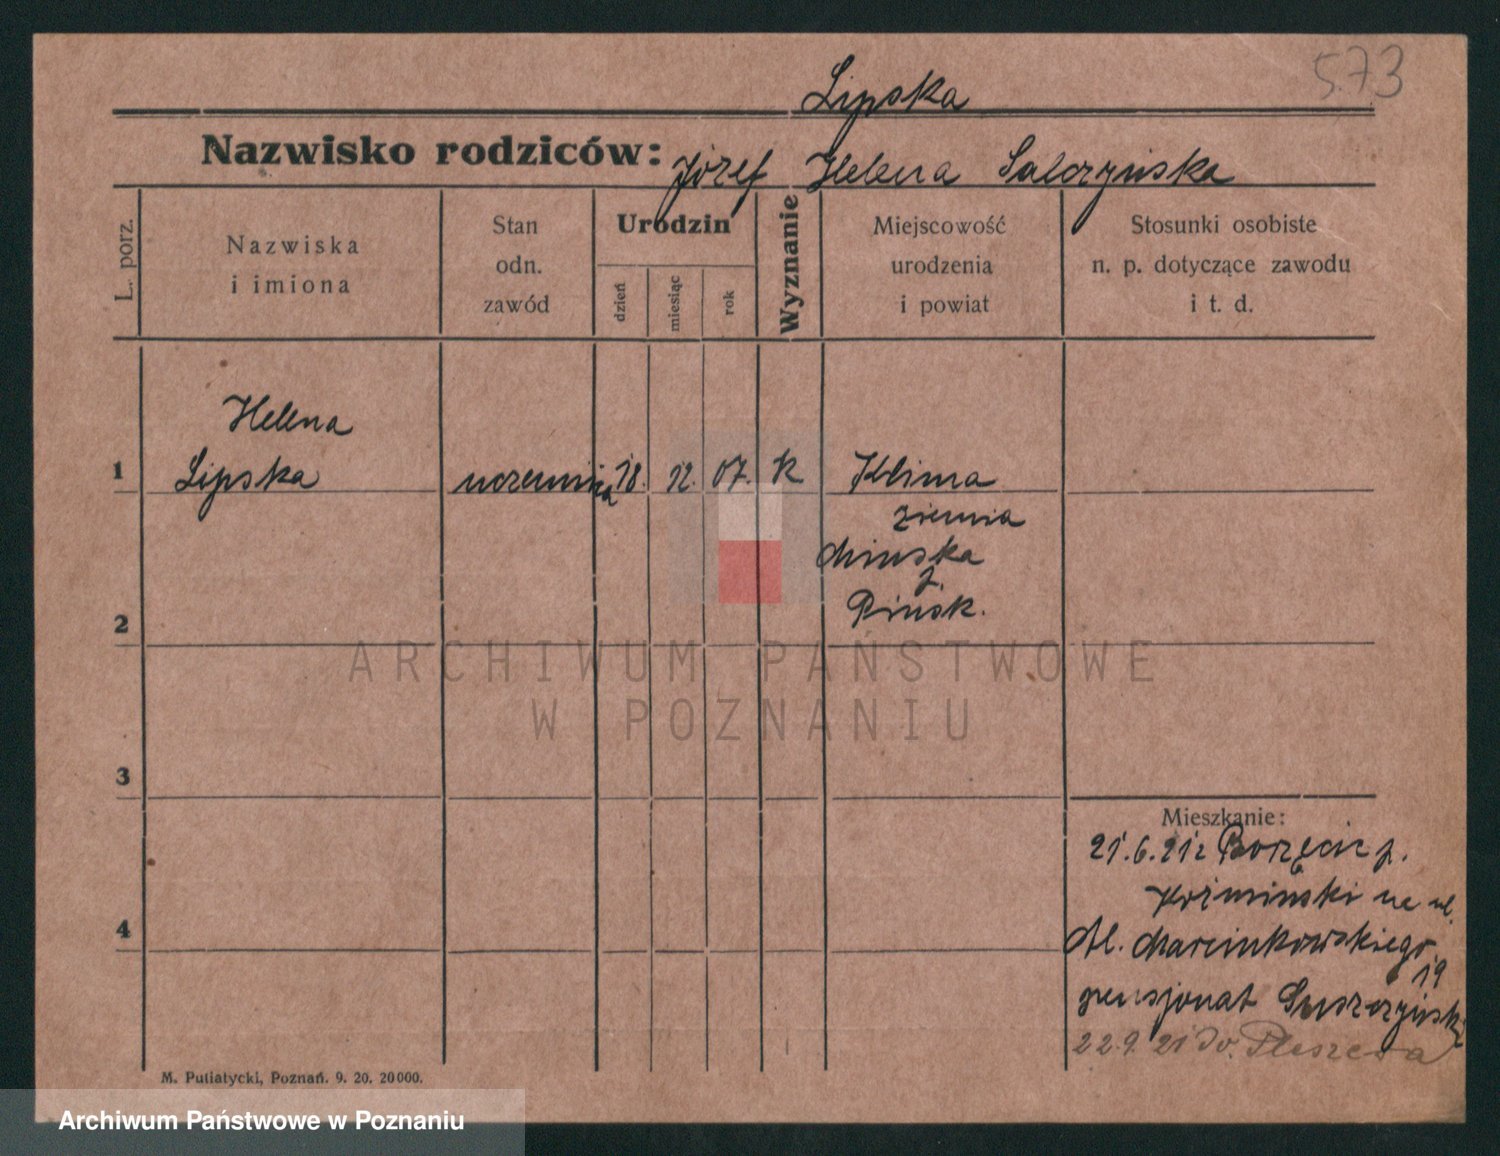 573
Lipska
Nazwisko rodziców: Józef Helena Salczyńska
L. porz.
Nazwiska
i imiona
Stan
odn.
zawód
Urodzin
dzień
miesiąc
rok
Wyznanie
Miejscowość
urodzenia
i powiat
Stosunki osobiste
n. p. dotyczące zawodu
i t. d.
Helena
1 Lipska uczennica 18. 12. 07. K Klima
ziemia
Mińska
p.
2 Pińsk.
ARCHIWUM PAŃSTWOWE
W POZNANIU
3
Mieszkanie:
21.6.21 z Borzęcic p.
Koźmiński na ul.
4 Al. Marcinkowskiego
19
pensjonat
22.9.21 do Pleszewa
M. Putiatycki, Poznań. 9. 20. 20000.
Archiwum Państwowe w Poznaniu